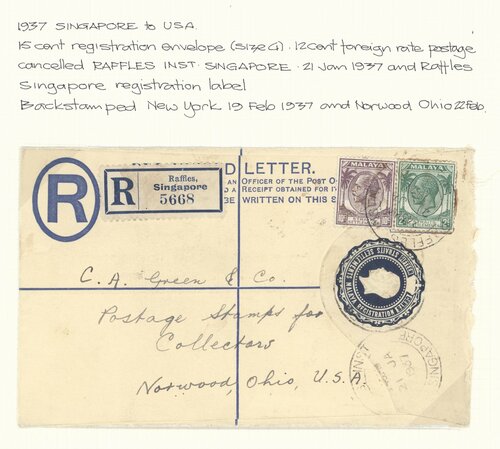 1937 SINGAPORE to USA.
15 cent registration envelope (SIZE G). 12 cent foreign rate postage
cancelled RAFFLES INST. SINGAPORE. 21 Jan 1937 and Raffles
Singapore registration label
Backstamped New York 19 Feb 1937 and Norwood Ohio 22 Feb.
D LETTER.
AN OFFICER OF THE POST O
A RECEIPT OBTAINED FOR IT
BE WRITTEN ON THIS S
R
R
Raffles,
Singapore
5668
MALAYA
MALAYA
STRAITS SETTLEMENTS
REGISTRATION
C. A. Green & Co.
Postage Stamps for
Collectors
Norwood, Ohio, U.S.A.
SINGAPORE
21
JA